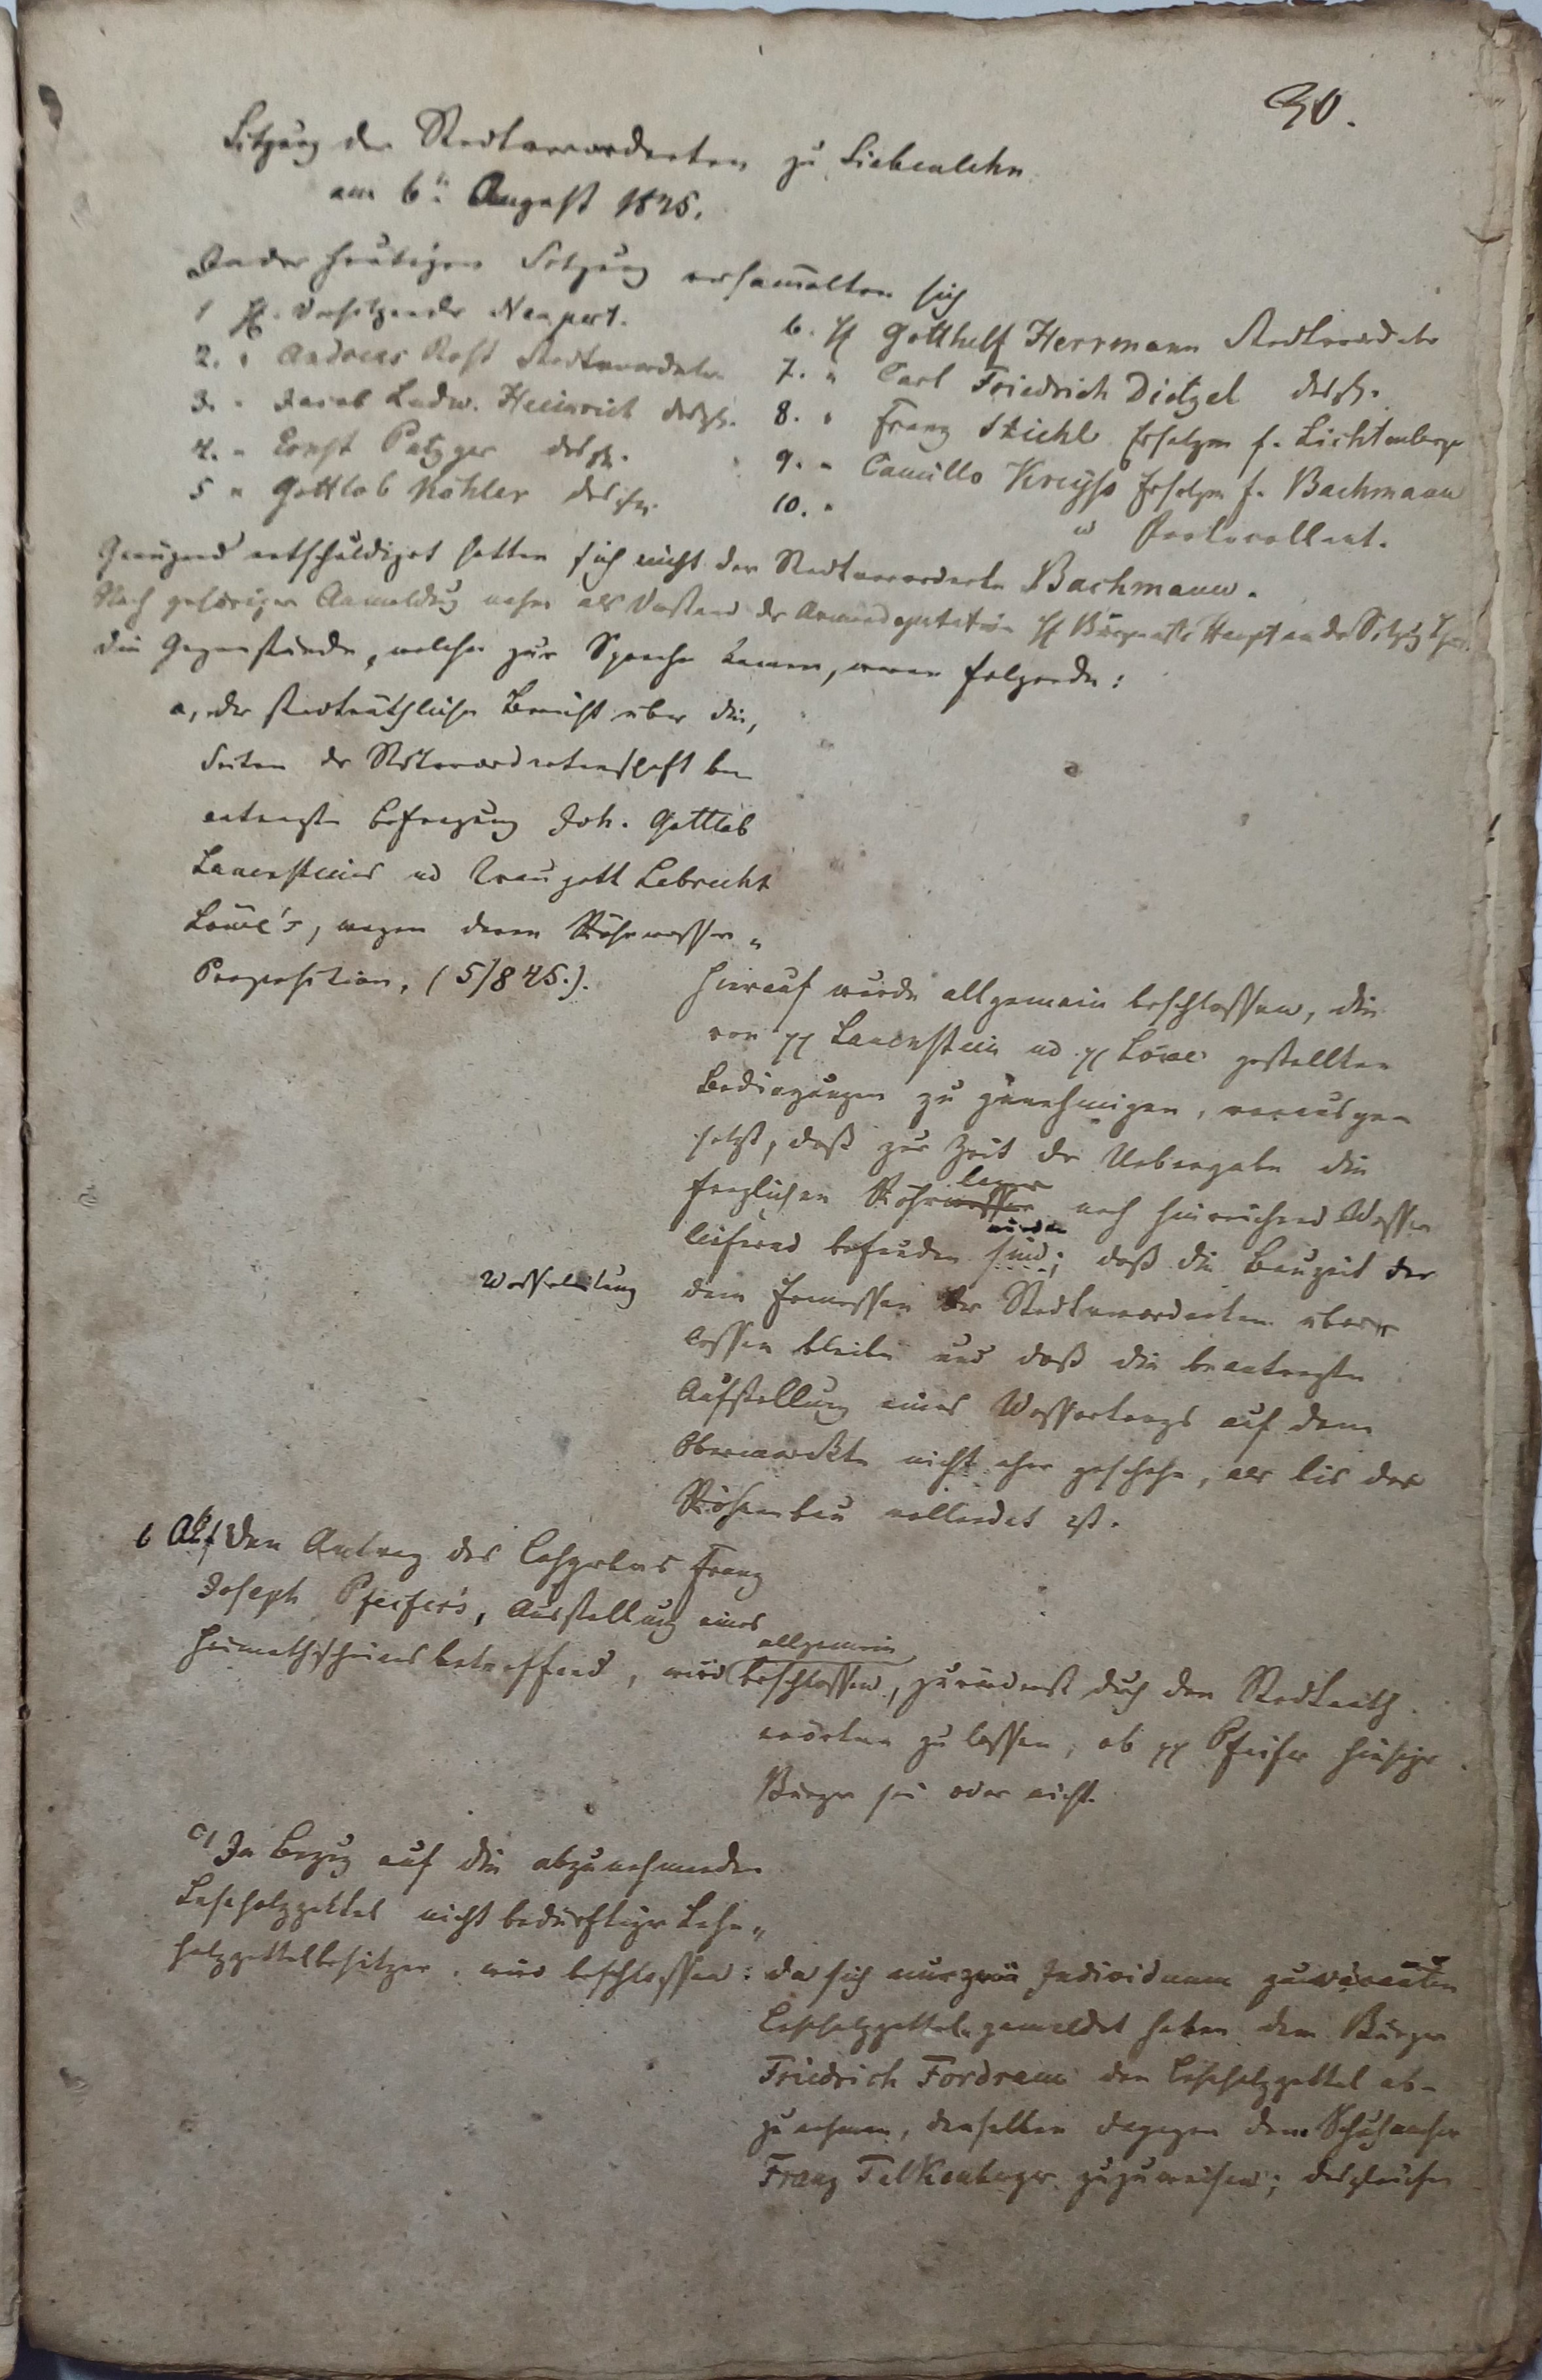 30.
Sitzung der Stadtverordneten zu Siebenlehn
am 6n August 1845.
In der heutigen Sitzung versam̄elten sich
1 H. Vorsitzender Neupert.
2. " Andreas Rost Stadtverordneter
3. " Jacob Ludw. Heinrich desgl.
4. " Ernst Patzger desgl.
5 " Gottlob Köhler desgl.
6. H Gotthelf Herrmann Stadtverordneter
7. " Carl Friedrich Dietzel desgl.
8. " Franz Stiehl Ersatzm f. Lichtenberger
9. " Camillo Kreyß Ersatzm f. Bachmann
10. " u Protocollant.
Genügend entschuldiget hatten sich nicht der Stadtverordnete Bachmann.
Nach gehöriger Anmeldung nahm als Vorstand der Armendeputation H Bürgermstr Haupt an der Sitzg Theil.
Die Gegenstände, welche zur Sprache kamen, waren folgende:
a, der stadträthliche Bericht über die,
Seiten der Stadtverordnetenschaft be-
antragte Befragung Joh. Gottlob
Lauensteins und Traugott Lebrecht
Löwe's, wegen deren Röhrwasser-
Proposition, (5/845.).
Hierauf wurde allgemein beschlossen, die
von pp Lauenstein und pp Löwe gestellten
Bedingungen zu genehmigen, vorausge-
setzt, daß zur Zeit der Uebergabe die
fraglichen Röhrwasser noch hinreichend Wasser
liefernd befunden sind; daß die Bauzeit der
würden
Wasserleitung dem Ermessen der Stadtverordneten über-
lassen bleibe und daß die beantragte
Aufstellung eines Wassertrogs auf dem
Obermarkte nicht eher geschehe, als bis der
Röhrenbau vollendet ist.
b Auf den Antrag des Lohgerbers Franz
Joseph Pfeifer's, Ausstellung eines
Heimathscheines betreffend, wird allgemein beschlossen, zuvörderst durch den Stadtrath
erörtern zu lassen, ob pp Pfeifer hiesiger
Bürger sei oder nicht.
c, In Bezug auf die abzunehmenden
Leseholzzettel nicht bedürftiger Lese-
holzzettelbesitzer, wird beschlossen: da sich nur zwei Individuen zu vacanten
Leseholzzetteln gemeldet haben dem Bürger
Friedrich Fordram den Leseholzzettel ab-
zunehmen, denselben dagegen dem Schuhmacher
Franz Falkenberger zuzuweisen; desgleichen